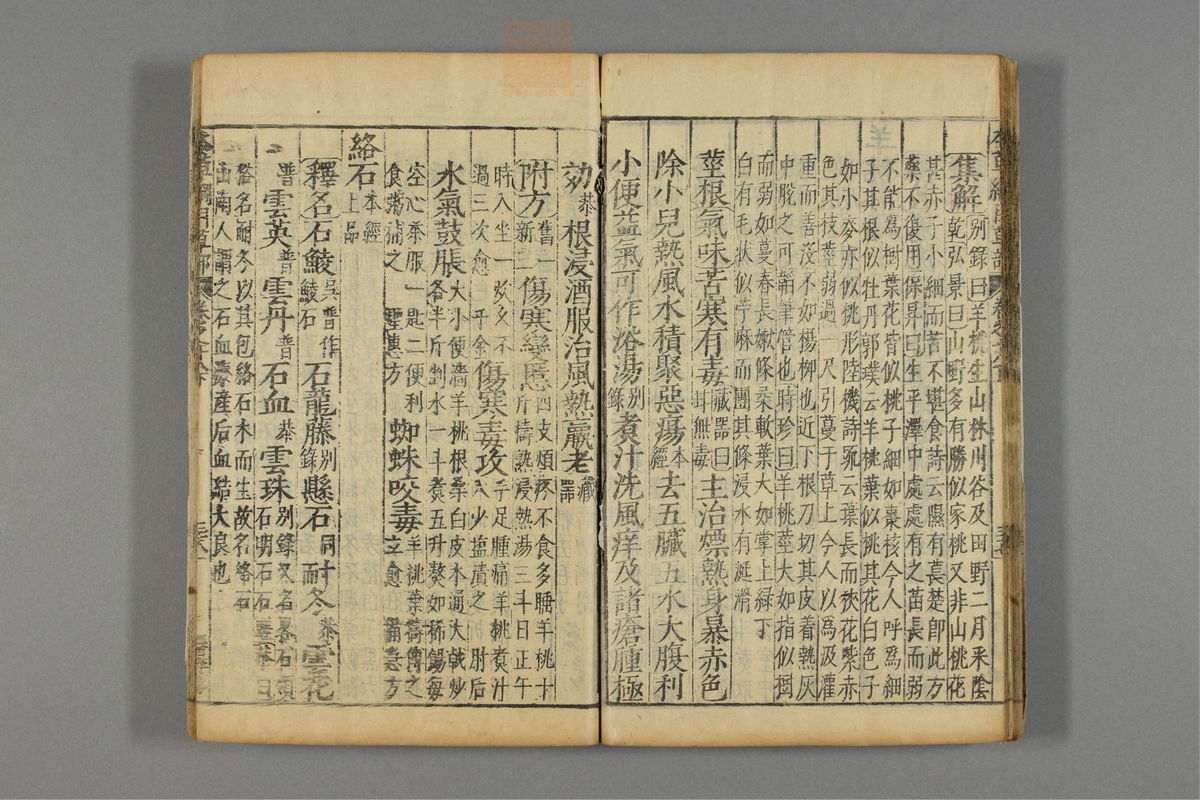 本草綱目草部
集解別錄曰羊桃生山林川谷及田野二月采陰
乾弘景曰山野多有勝似家桃又非山桃花
其赤子小細而苦不堪食詩云隰有萇楚即此方
藥不復用保昇曰生平澤中處處有之苗長而弱
不能爲樹葉花皆似桃子細如棗核今人呼爲細
子其根似牡丹郭璞云羊桃葉似桃其花白色子
如小麥亦似桃形陸機詩疏云葉長而狹花紫赤
色其枝莖弱過一尺引蔓于草上今人以爲汲灌
重而善沒不如楊柳也近下根刀切其皮着熱灰
中脫之可韜筆管也時珍曰羊桃莖大如指似樹
而弱如蔓春長嫩條柔軟葉大如掌上綠下
白有毛狀似苧麻而團其條浸水有涎滑
莖根氣味苦寒有毒藏器曰甘無毒主治熛熱身暴赤色
除小兒熱風水積聚惡瘍本經去五臟五水大腹利
小便益氣可作浴湯別錄煮汁洗風痒及諸瘡腫極
効恭根浸酒服治風熱羸老藏器
附方舊一新三傷寒變䘌四支煩疼不食多睡羊桃十斤擣熟浸熱湯三斗日正午
時入坐一炊久不過三次愈千金傷寒毒攻手足腫痛羊桃煮汁入少塩漬之肘后
水氣鼓脹大小便濇羊桃根桑白皮木通大戟炒各半斤剉水一斗煮五升熬如稀餳每
空心茶服一匙二便利食粥補之聖惠方蜘蛛咬毒羊桃葉擣傅之立愈備急方
絡石本經上品
釋名石鯪吳普作鯪石石龍藤別錄懸石同耐冬恭雲花
普雲英普雲丹普石血恭雲珠別錄又名畧石領石明石石恭曰
俗名耐冬以其包絡石木而生故名絡石
山南人謂之石血療產后血結大良也
本草綱目草部